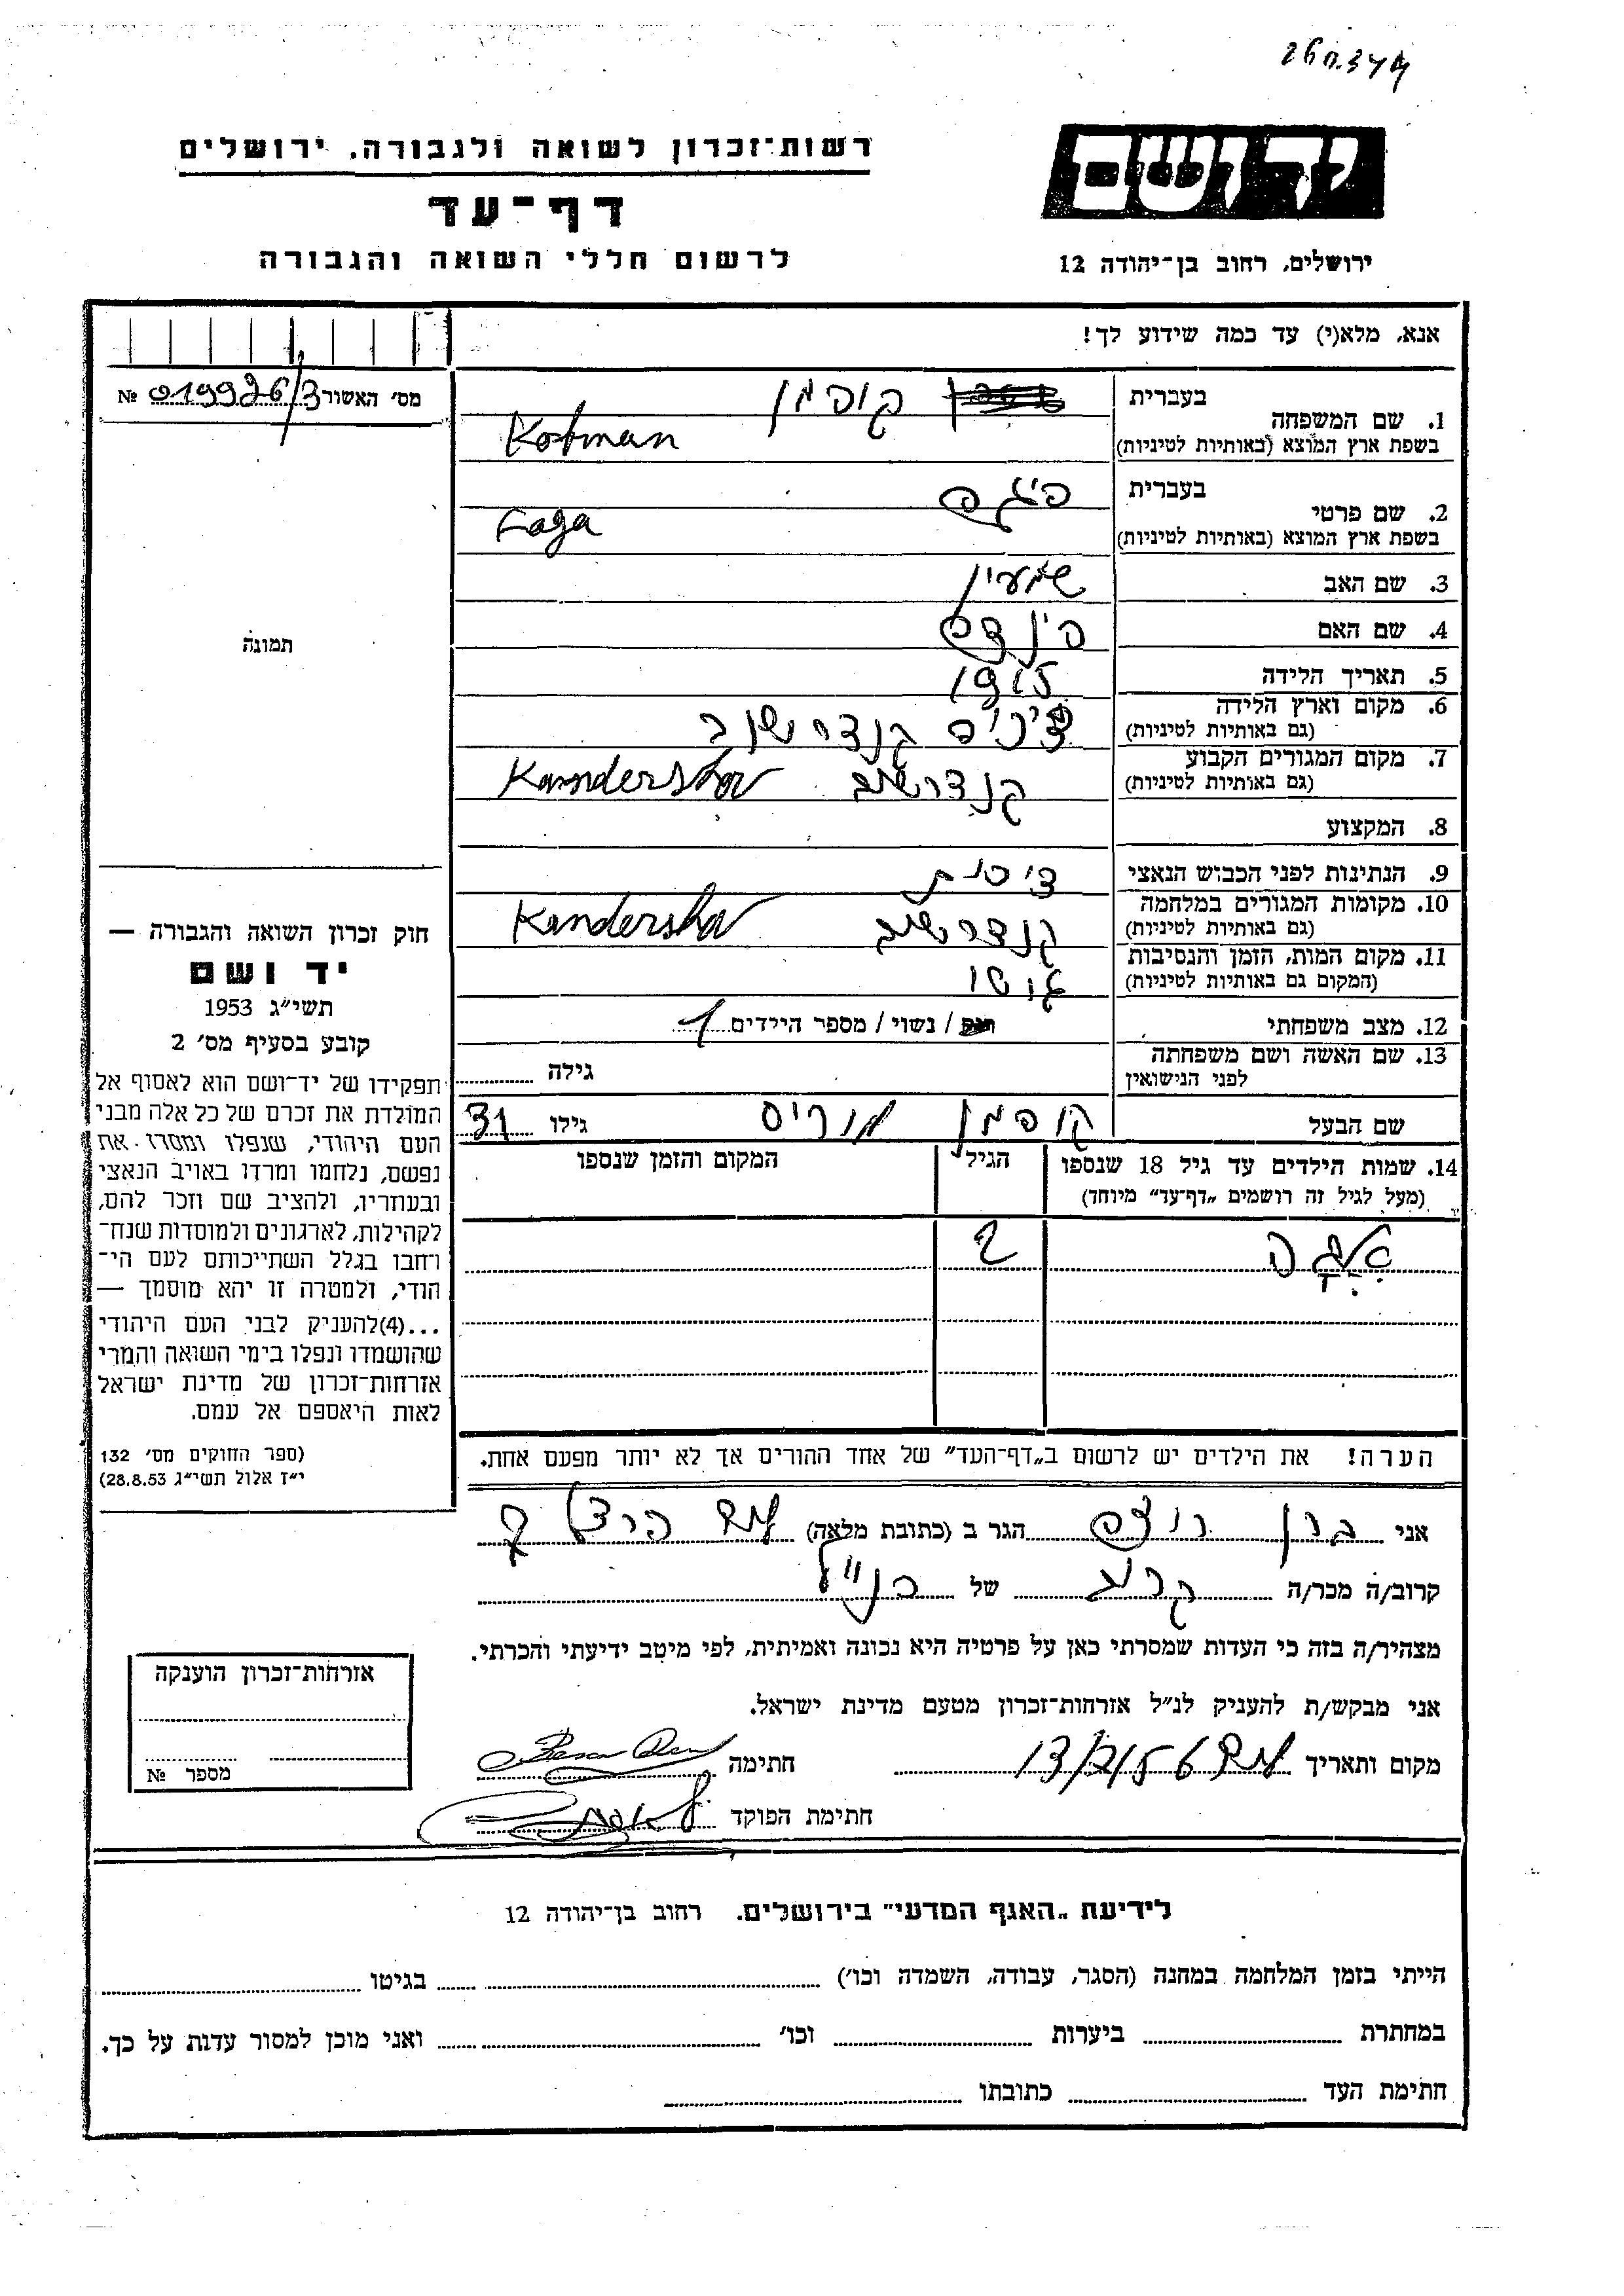 רשות־זכרון לשואה ולגבורה. ירושלים
דף־עד
לרשום חללי השואה והגבורה
ידושם
ירושלים, רחוב בן־יהודה 12
אנא, מלא(י) עד כמה שידוע לך!
מס׳ האשור 019926/3 №
בעברית קופמן
1. שם המשפחה
בשפת ארץ המוצא (באותיות לטיניות) Kofman
בעברית פיגה
2. שם פרטי
בשפת ארץ המוצא (באותיות לטיניות) Faga
3. שם האב שמעון
4. שם האם הינדה
5. תאריך הלידה 1915
6. מקום וארץ הלידה קנדרשוב
(גם באותיות לטיניות)
7. מקום המגורים הקבוע קנדרשוב Kandershov
(גם באותיות לטיניות)
8. המקצוע
9. הנתינות לפני הכבוש הנאצי
10. מקומות המגורים במלחמה קנדרשוב Kandershov
(גם באותיות לטיניות)
11. מקום המות, הזמן והנסיבות
(המקום גם באותיות לטיניות)
12. מצב משפחתי / נשוי / מספר הילדים 1
13. שם האשה ושם משפחתה גילה
לפני הנישואין
שם הבעל קופמן מוריס גילו 31
14. שמות הילדים עד גיל 18 שנספו הגיל המקום והזמן שנספו
(מעל לגיל זה רושמים „דף־עד” מיוחד)
2
הערה! את הילדים יש לרשום ב„דף־העד” של אחד ההורים אך לא יותר מפעם אחת.
תמונה
חוק זכרון השואה והגבורה —
יד ושם
תשי״ג 1953
קובע בסעיף מס׳ 2
תפקידו של יד־ושם הוא לאסוף אל
המולדת את זכרם של כל אלה מבני
העם היהודי, שנפלו ומסרו את
נפשם, נלחמו ומרדו באויב הנאצי
ובעוזריו, ולהציב שם וזכר להם,
לקהילות, לארגונים ולמוסדות שנח־
רחבו בגלל השתייכותם לעם הי־
הודי, ולמטרה זו יהא מוסמך —
...(4)להעניק לבני העם היהודי
שהושמדו ונפלו בימי השואה והמרי
אזרחות־זכרון של מדינת ישראל
לאות היאספם אל עמם.
(ספר החוקים מס׳ 132
י״ז אלול תשי״ג 28.8.53)
אני ברן הגר ב (כתובת מלאה) הרצל
קרוב/ה מכר/ה קרוב של הנ״ל
מצהיר/ה בזה כי העדות שמסרתי כאן על פרטיה היא נכונה ואמיתית, לפי מיטב ידיעתי והכרתי.
אני מבקש/ת להעניק לנ״ל אזרחות־זכרון מטעם מדינת ישראל.
מקום ותאריך חתימה
חתימת הפוקד
אזרחות־זכרון הוענקה
מספר №
לידיעת „האגף המדעי” בירושלים. רחוב בן־יהודה 12
הייתי בזמן המלחמה במחנה (הסגר, עבודה, השמדה וכו׳) בגיטו
במחתרת ביערות וכו׳ ואני מוכן למסור עדות על כך.
חתימת העד כתובתו